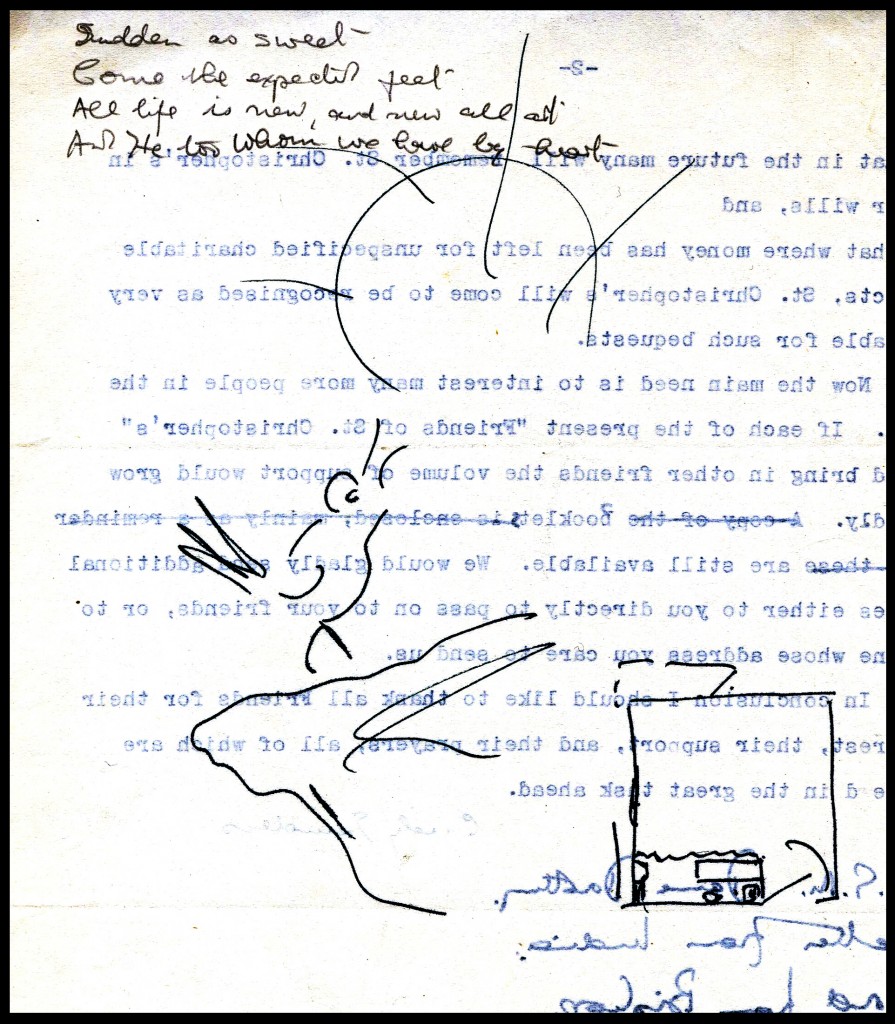 Sudden as sweet
Come the expected feet
All life is new, and new all art
And He too Whom we have by heart
-2-
at in the future many will remember St. Christopher's in
r wills, and
hat where money has been left for unspecified charitable
cts, St. Christopher's will come to be recognised as very
able for such bequests.
Now the main need is to interest many more people in the
. If each of the present "Friends of St. Christopher's"
d bring in other friends the volume of support would grow
dly. A copy of the Booklet is enclosed, mainly as a reminder
these are still available. We would gladly send additional
es either to you directly to pass on to your friends, or to
ne whose address you care to send us.
In conclusion I should like to thank all Friends for their
rest, their support, and their prayers, all of which are
e d in the great task ahead.
from India.